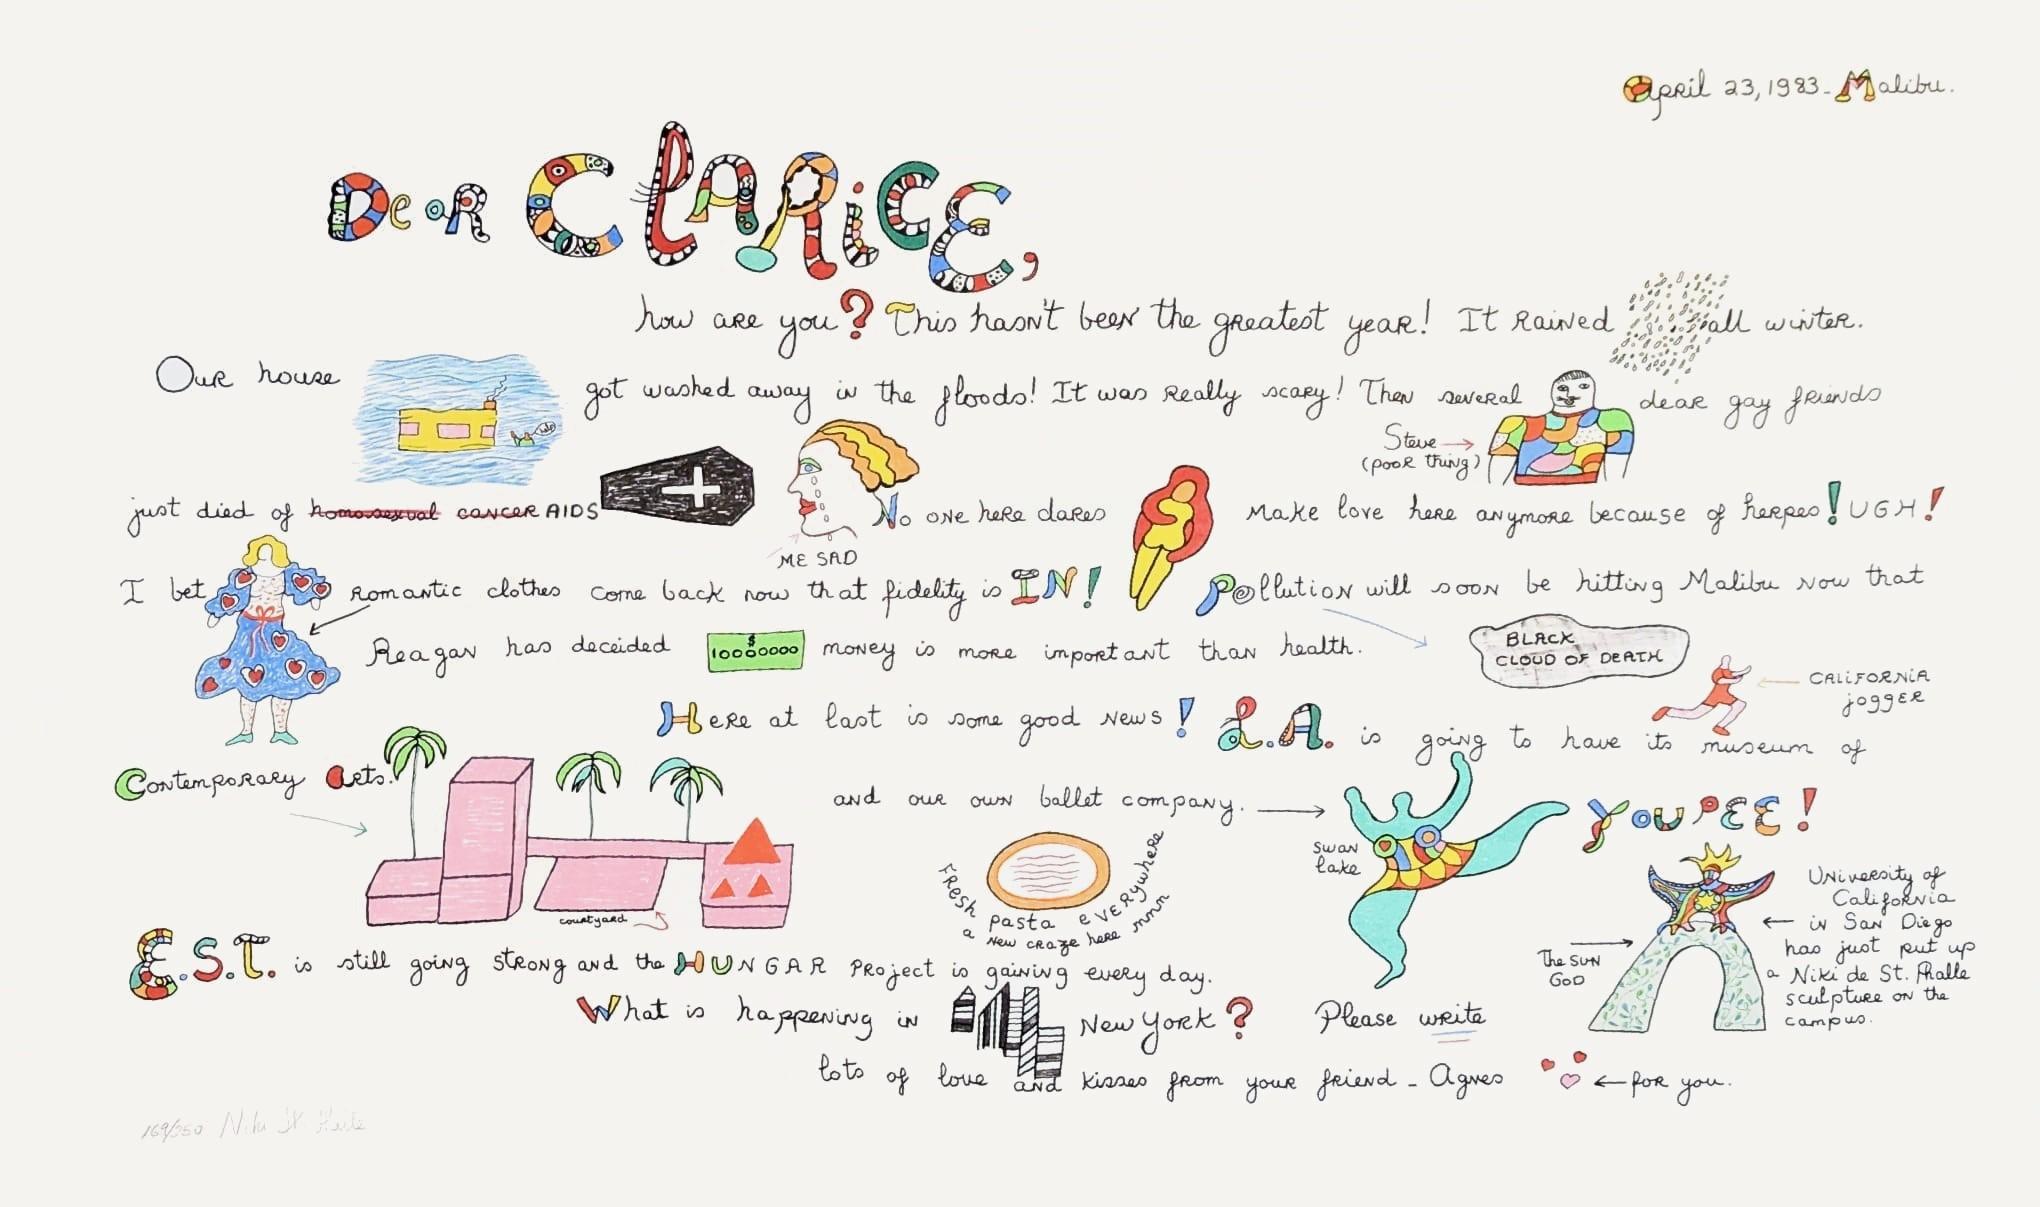 April 23, 1983 - Malibu.
Dear Clarice,
how are you? This hasn't been the greatest year! It rained all winter.
Our house got washed away in the floods! It was really scary! Then several dear gay friends
help
Steve
(poor thing)
just died of homosexual cancer AIDS No one here dares make love here anymore because of herpes! UGH!
ME SAD
I bet romantic clothes come back now that fidelity is IN! Pollution will soon be hitting Malibu now that
Reagan has deceided $ 10000000 money is more important than health.
BLACK
CLOUD OF DEATH
CALIFORNIA
jogger
Here at last is some good news! L.A. is going to have its museum of
Contemporary Arts. and our own ballet company. Youpee!
courtyard
Fresh pasta everywhere
a new craze here mnn
swan
lake
The SUN
GOD
University of
California
in San Diego
has just put up
a Niki de St. Phalle
sculpture on the
campus.
E.S.T. is still going strong and the HUNGAR Project is gaining every day.
What is happening in New York? Please write
lots of love and kisses from your friend - Agnes for you.
169/350 Niki St Phalle